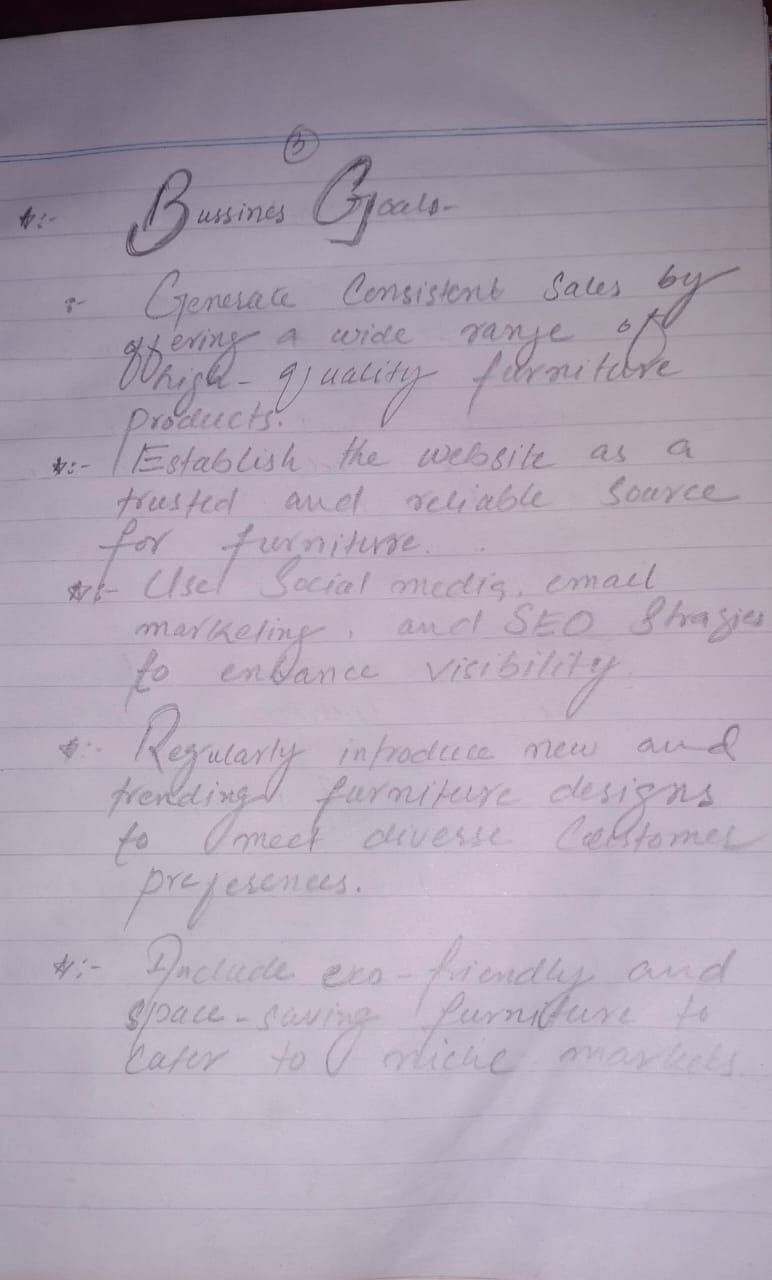 3
☆:- Bussines Goals-
:- Generate Consistent Sales by
offering a wide range of
high-quality furniture
products.
☆:- Establish the website as a
trusted and reliable Source
for furniture.
☆:- Use Social media, email
marketing, and SEO Stragies
to enhance visibility.
☆:- Regularly introduce new and
trending furniture designs
to meet diverse Customer
preferences.
☆:- Include eco-friendly and
space-saving furniture to
cater to niche markets